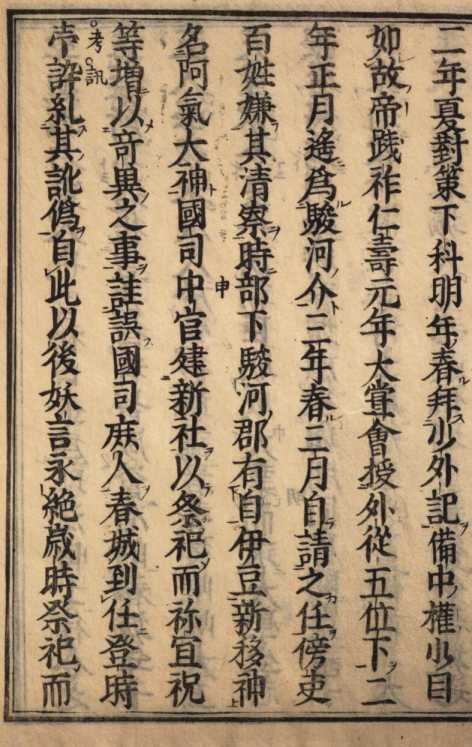 二年夏對策下科明年春拜少外記備中權少目
如故帝踐祚仁壽元年大甞會授外從五位下二
年正月遙爲駿河介三年春三月自請之任傍吏
百姓嫌其清察時部下駿河郡有自伊豆新移神
名阿氣大神國司申官建新社以祭祀而祢宜祝
等增以奇異之事詿誤國司庶人春城到任登時
訊糺其訛僞自此以後妖言永絕歲時祭祀而